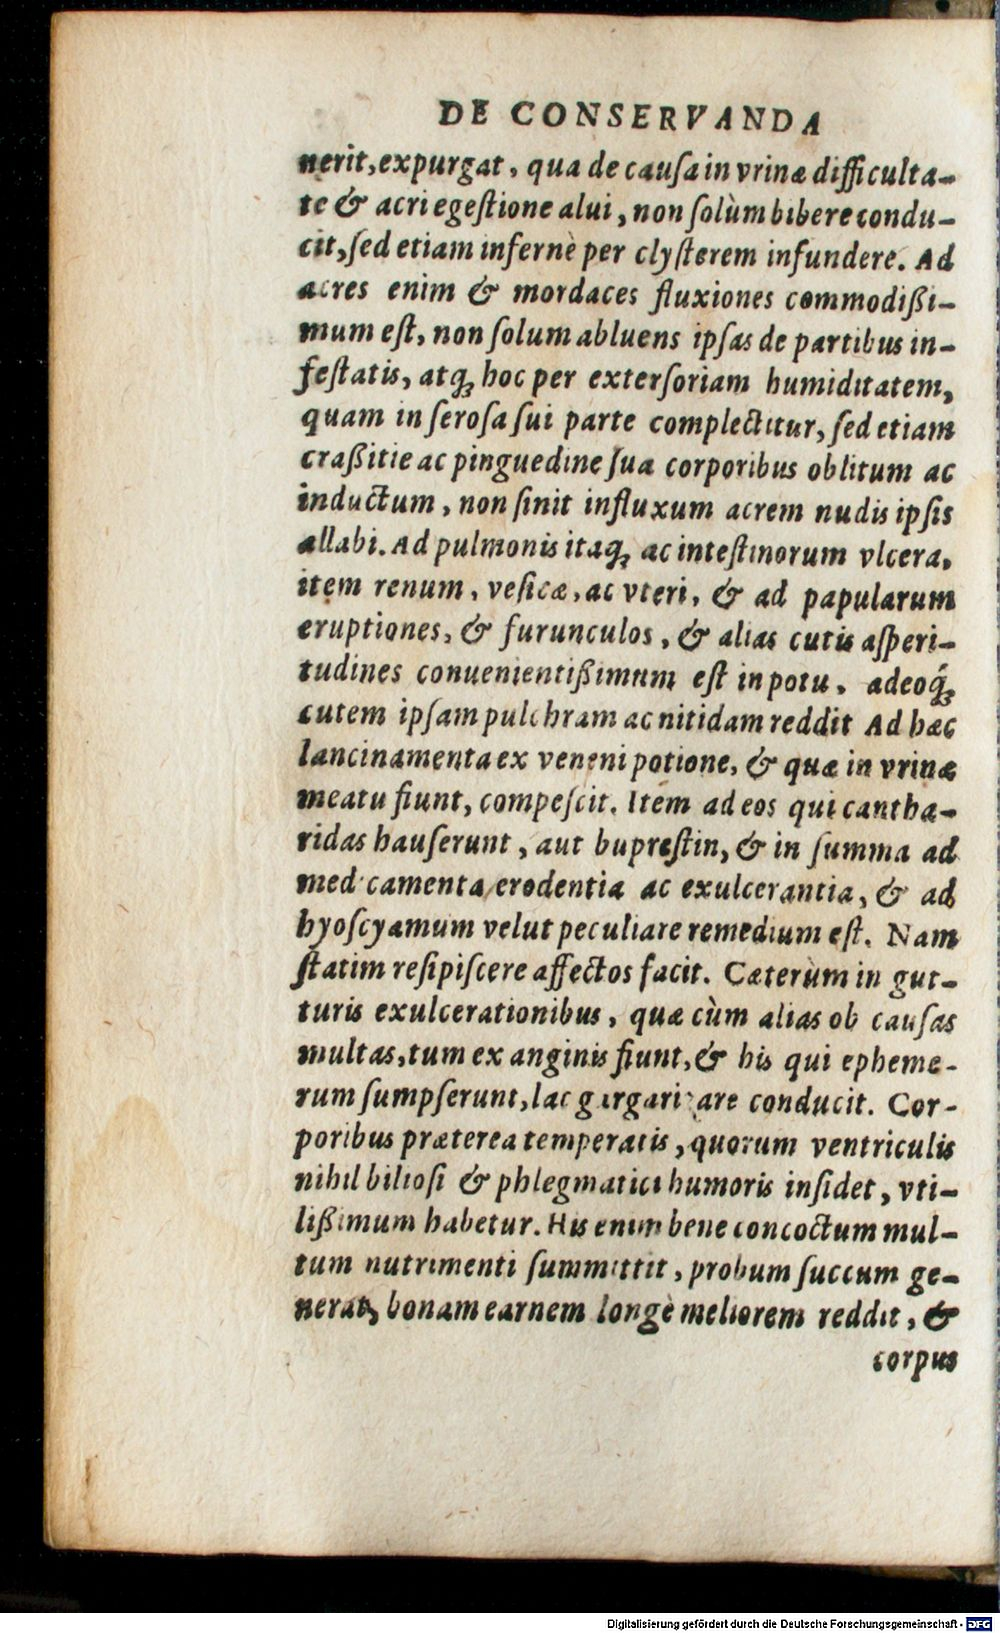 DE CONSERVANDA
nerit, expurgat, qua de causa in vrinæ difficulta-
te & acri egeſtione alui, non ſolùm bibere condu-
cit, ſed etiam infernè per clyſterem infundere. Ad
acres enim & mordaces fluxiones commodißi-
mum eſt, non ſolum abluens ipſas de partibus in-
feſtatis, atq; hoc per exterſoriam humiditatem,
quam in ſeroſa ſui parte complectitur, ſed etiam
craßitie ac pinguedine ſua corporibus oblitum ac
inductum, non ſinit influxum acrem nudis ipſis
allabi. Ad pulmonis itaq; ac inteſtinorum vlcera,
item renum, veſicæ, ac vteri, & ad papularum
eruptiones, & furunculos, & alias cutis aſperi-
tudines conuenientißimum eſt in potu, adeoq́;
cutem ipſam pulchram ac nitidam reddit Ad hæc
lancinamenta ex veneni potione, & quæ in vrinæ
meatu fiunt, compeſcit. Item ad eos qui cantha-
ridas hauſerunt, aut bupreſtin, & in ſumma ad
medicamenta erodentia ac exulcerantia, & ad
hyoſcyamum velut peculiare remedium eſt. Nam
ſtatim reſipiſcere affectos facit. Cæterùm in gut-
turis exulcerationibus, quæ cùm alias ob cauſas
multas, tum ex anginis fiunt, & his qui epheme-
rum ſumpſerunt, lac gargarizare conducit. Cor-
poribus præterea temperatis, quorum ventriculis
nihil bilioſi & phlegmatici humoris inſidet, vti-
lißimum habetur. His enim bene concoctum mul-
tum nutrimenti ſummittit, probum ſuccum ge-
nerat, bonam earnem longè meliorem reddit, &
corpus
Digitalisierung gefördert durch die Deutsche Forschungsgemeinschaft - DFG